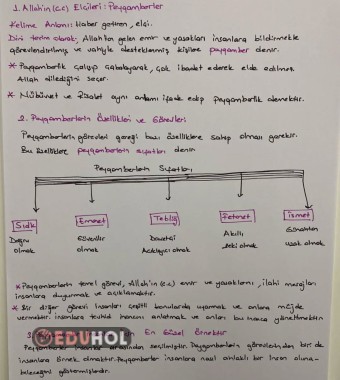 1. Allah'ın (c.c) Elçileri: Peygamberler
Kelime Anlamı: Haber getiren, elçi.
Dini terim olarak; Allah'tan gelen emir ve yasakları insanlara bildirmekle
görevlendirilmiş ve vahiyle desteklenmiş kişilere peygamber denir.
* Peygamberlik çalışıp çabalayarak, çok ibadet ederek elde edilmez.
Allah dilediğini seçer.
* Nübüvvet ve Risalet aynı anlamı ifade edip peygamberlik demektir.
2. Peygamberlerin Özellikleri ve Görevleri
Peygamberlerin görevleri gereği bazı özelliklere sahip olması gerekir.
Bu özelliklere peygamberlerin sıfatları denir.
Peygamberlerin Sıfatları
Sıdk Emanet Tebliğ Fetanet İsmet
Doğru olmak Güvenilir olmak Davetçi Açıklayıcı olmak Akıllı Zeki olmak Günahtan uzak olmak
* Peygamberlerin temel görevi, Allah'ın (c.c) emir ve yasaklarını, ilahi mesajları
insanlara duyurmak ve açıklamaktır.
* Bir diğer görevi insanları çeşitli konularda uyarmak ve onlara müjde
vermektir. insanlara tevhid inancını anlatmak ve onları bu inanca yöneltmektir.
3. En Güzel Örnektir
Peygamberler insanlar arasından seçilmiştir. Peygamberlerin görevlerinden biri de
insanlara örnek olmaktır. Peygamberler insanlara nasıl ahlaklı bir insan oluna-
bileceğini göstermişlerdir.
EDUHOL